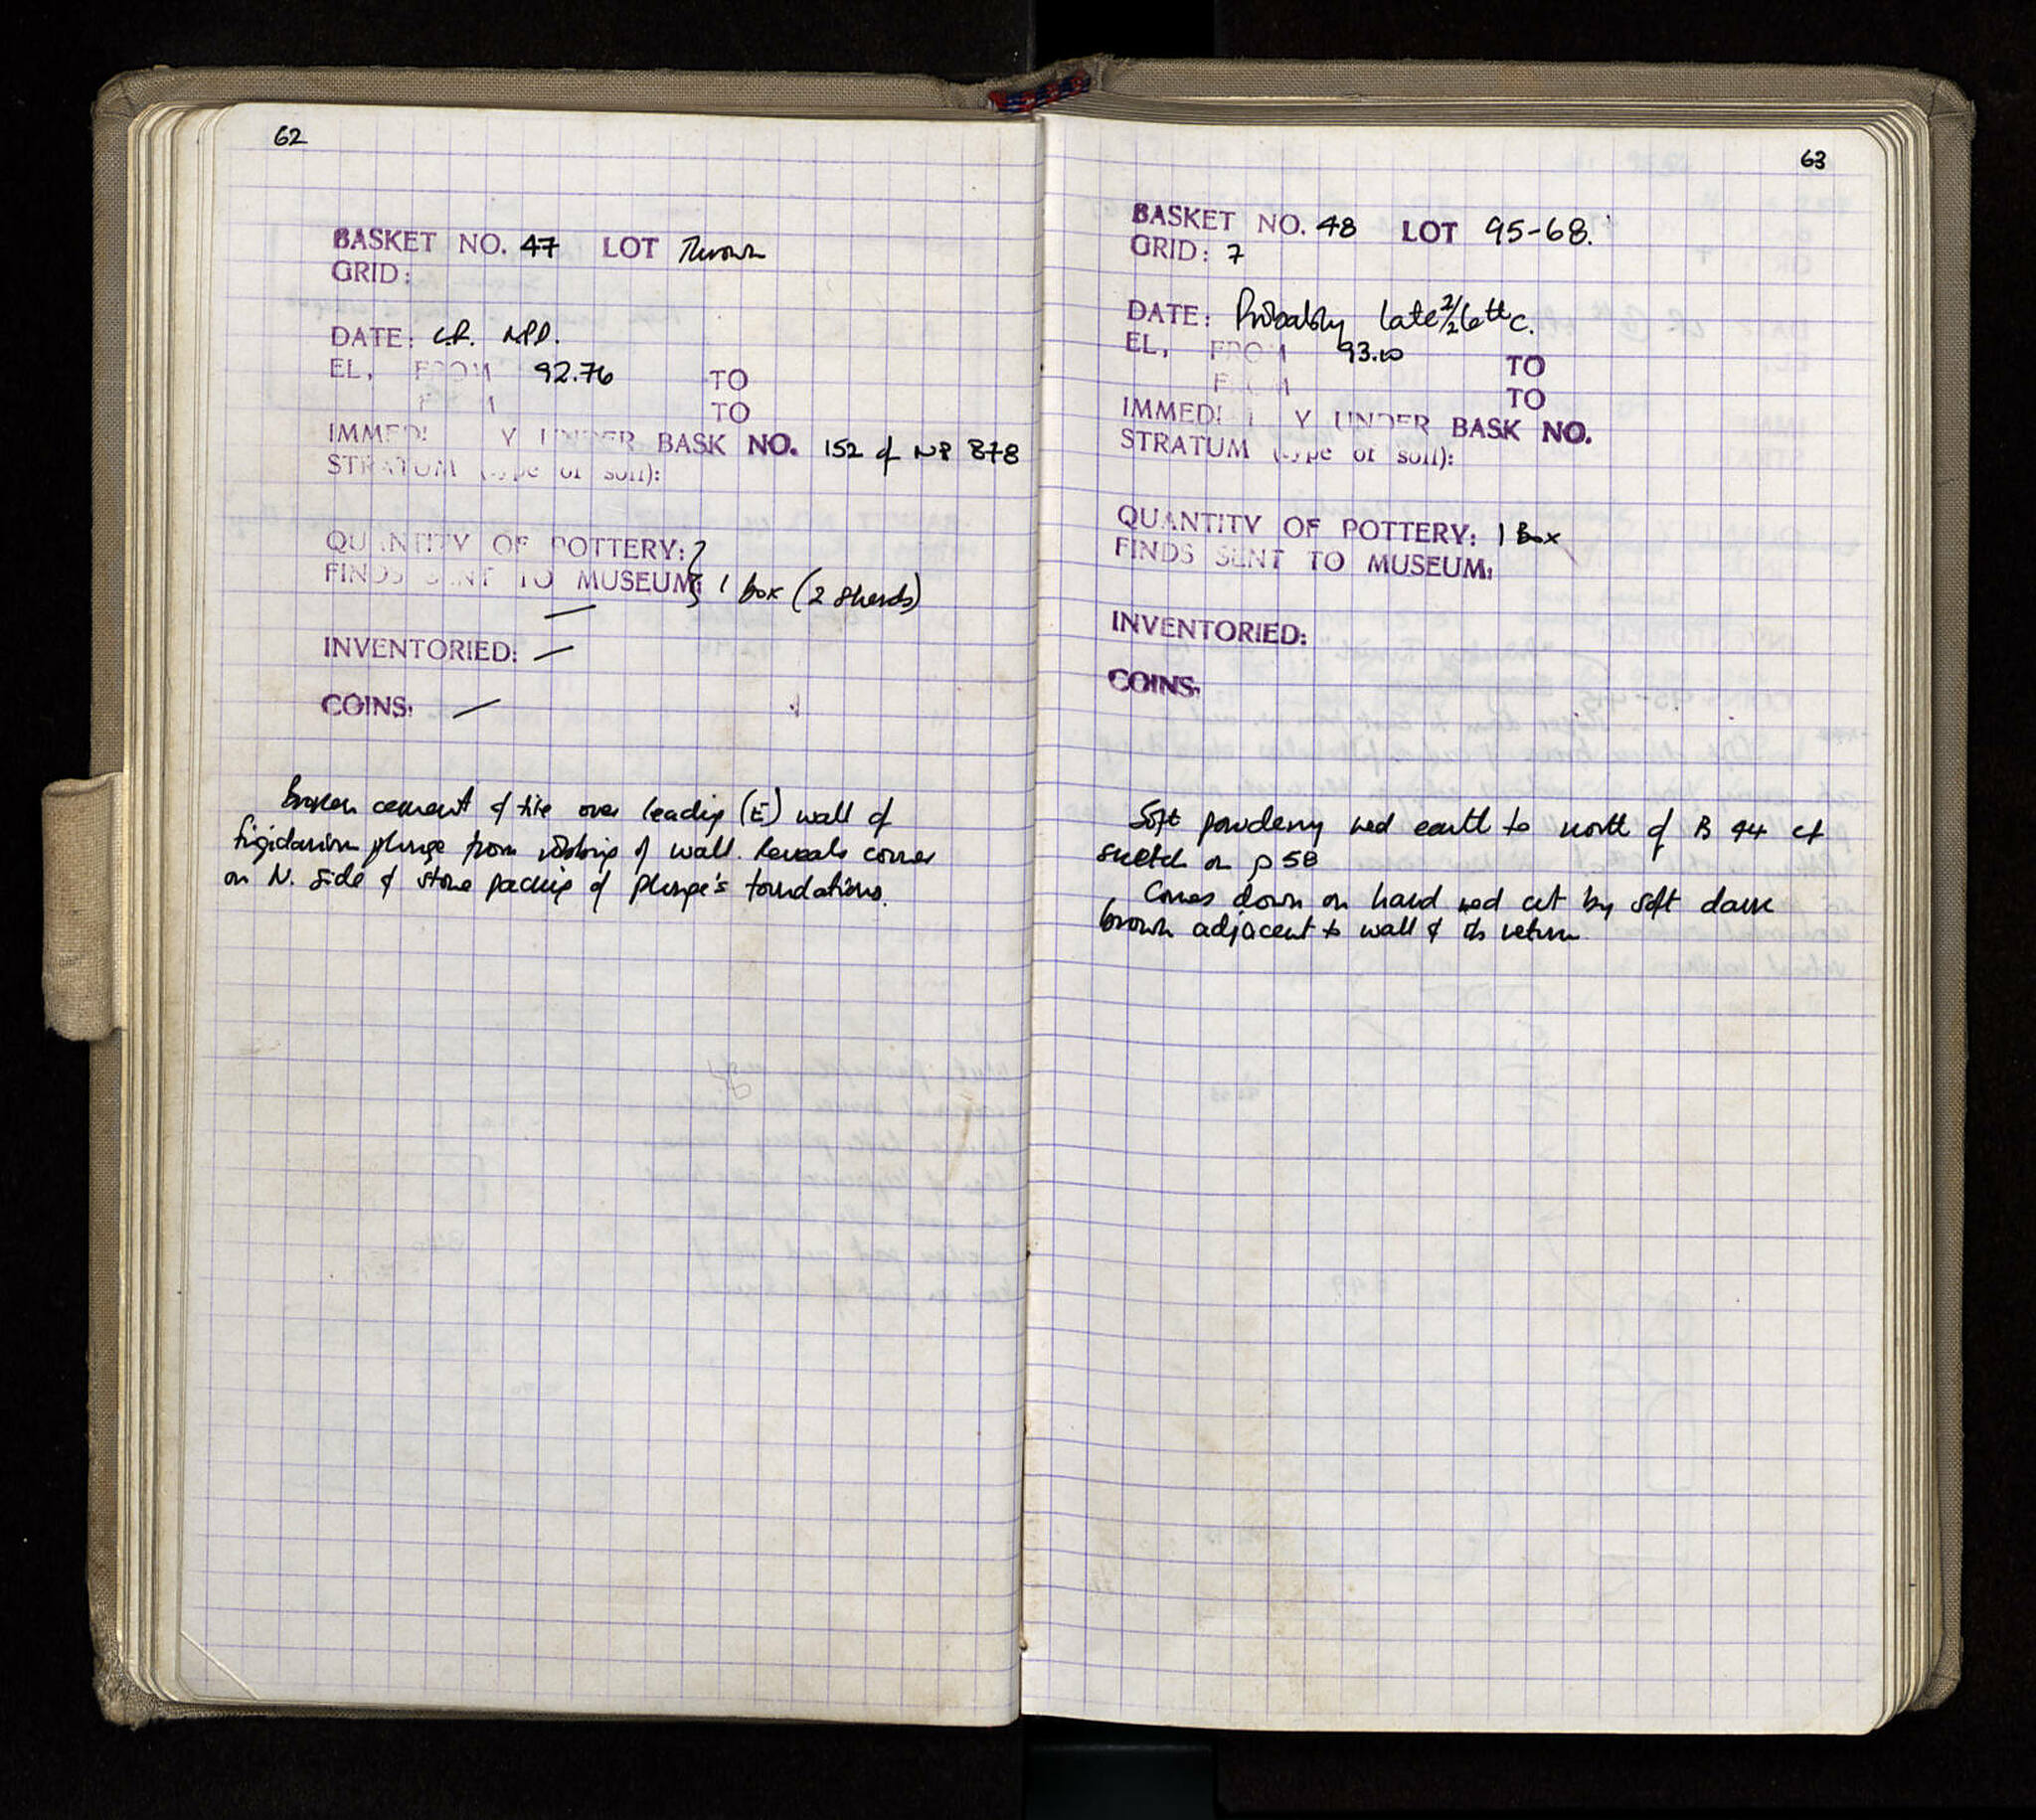 62
BASKET NO. 47 LOT Thrown
GRID:
DATE: L.R. NPD.
EL, FROM 92.76 TO
FROM TO
IMMEDIATELY UNDER BASK NO. 152 of NB 878
STRATUM (type of soil):
QUANTITY OF POTTERY:
FINDS SENT TO MUSEUM: 1 box (2 sherds)
INVENTORIED: —
COINS: —
broken cement & tile over leading (E) wall of
frigidarium plunge from robbing of wall. Reveals corner
on N. side & stone packing of plunge's foundations.
63
BASKET NO. 48 LOT 95-68.
GRID: 7
DATE: Probably late 2/2 6th c.
EL, FROM 93.10 TO
FROM TO
IMMEDIATELY UNDER BASK NO.
STRATUM (type of soil):
QUANTITY OF POTTERY: 1 Box
FINDS SENT TO MUSEUM:
INVENTORIED:
COINS:
Soft powdery red earth to north of B 44 cf
sketch on p 58
Comes down on hard red cut by soft dark
brown adjacent to wall & its return